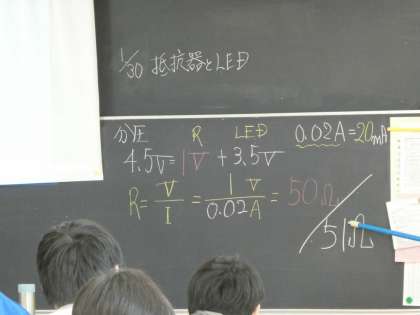 1/30 抵抗器とLED
分圧 R LED 0.02A=20mA
4.5V=1V+3.5V
R=V/I=1V/0.02A=50Ω
51Ω